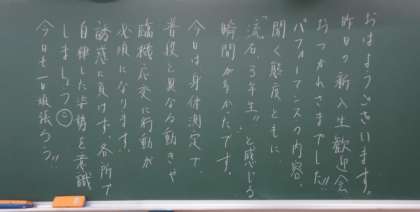 おはようございます!!
昨日の新入生歓迎会
おつかれさまでした!!
パフォーマンスの内容、
聞く態度ともに
「流石、3年生」と感じる
瞬間が多かったです。
今日は身体測定で、
普段と異なる動きや
臨機応変に行動が
必須になります。
誘惑に負けず、各所で
自律した姿勢を意識
しましょう☺
今日も一日頑張ろう!!